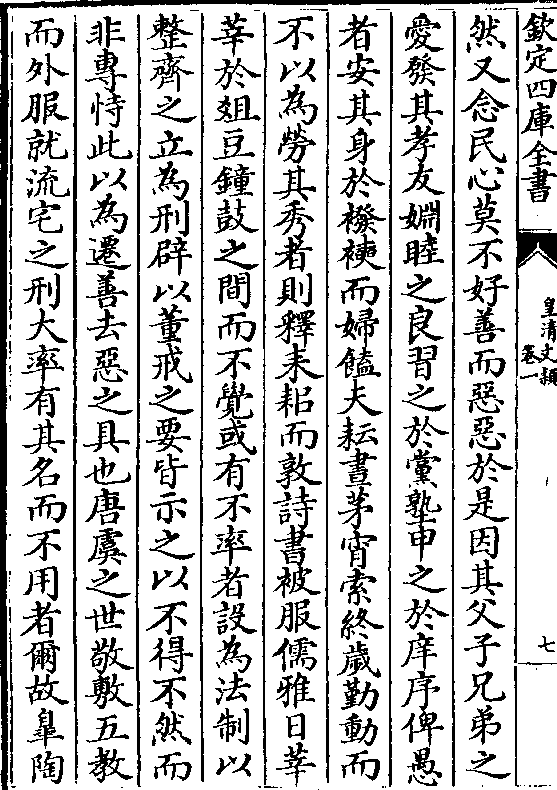 欽定四庫全書
皇清文穎
卷一
七
然又念民心莫不好善而惡惡於是因其父子兄弟之
愛發其孝友婣睦之良習之於黨塾申之於庠序俾愚
者安其身於襏襫而婦饁夫耘晝茅宵索終歲勤動而
不以為勞其秀者則釋耒耜而敦詩書被服儒雅日莘
莘於俎豆鐘鼓之間而不覺或有不率者設為法制以
整齊之立為刑辟以董戒之要皆示之以不得不然而
非專恃此以為遷善去惡之具也唐虞之世敬敷五教
而外服就流宅之刑大率有其名而不用者爾故臯陶